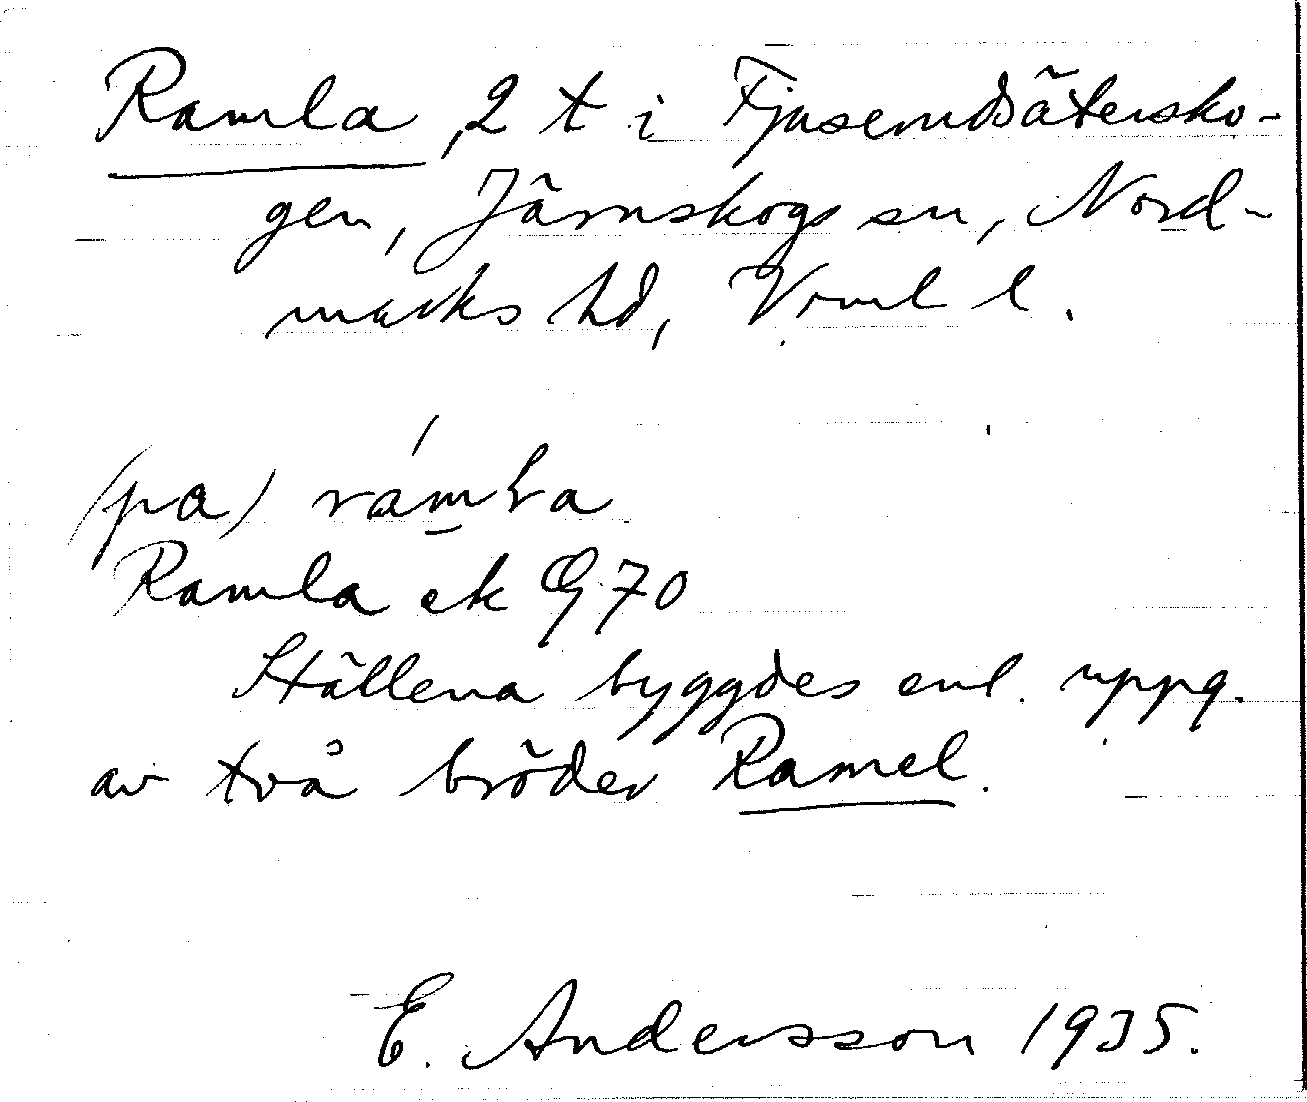 Ramla, 2 t i Fjusemdsätersko-
gen, Järnskogs sn, Nord-
marks hd, Vrml l.
(pa) ramla
Ramla ek G 70
Ställena byggdes enl. uppg.
av två bröder Ramel.
E. Andersson 1935.